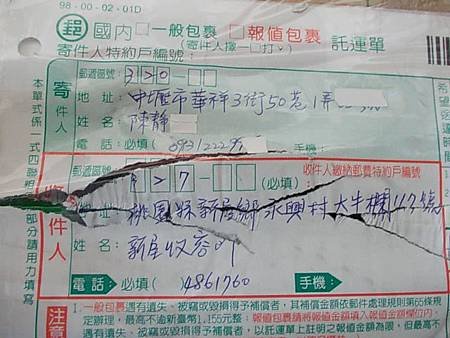 98-00-02-01D
郵 國內 □一般包裹 □報值包裹 託運單
(寄件人擇一打✓。)
寄件人特約戶編號:
寄件人
郵遞區號: 320-□□
地址: 中壢市華祥3街50巷1弄
姓名: 陳靜
電話: 必填( )0931222 手機:
收件人
郵遞區號: 327-□□ (必填) 收件人繳納郵費特約戶編號
地址: 桃園縣新屋鄉永興村大牛欄117號
姓名: 新屋收容所
電話: 必填( )4861760 手機:
本單式係一式四聯
部分請用力填寫
注意
1. 一般包裹遇有遺失、被竊或毀損得予補償者,其補償金額依郵件處理規則第65條
規定辦理,最高不逾新臺幣1,155元整;報值包裹請將報值金額填入報值金額欄位內,
遇有遺失、被竊或毀損得予補償者,以託運單上註明之報值金額為限,但最高不